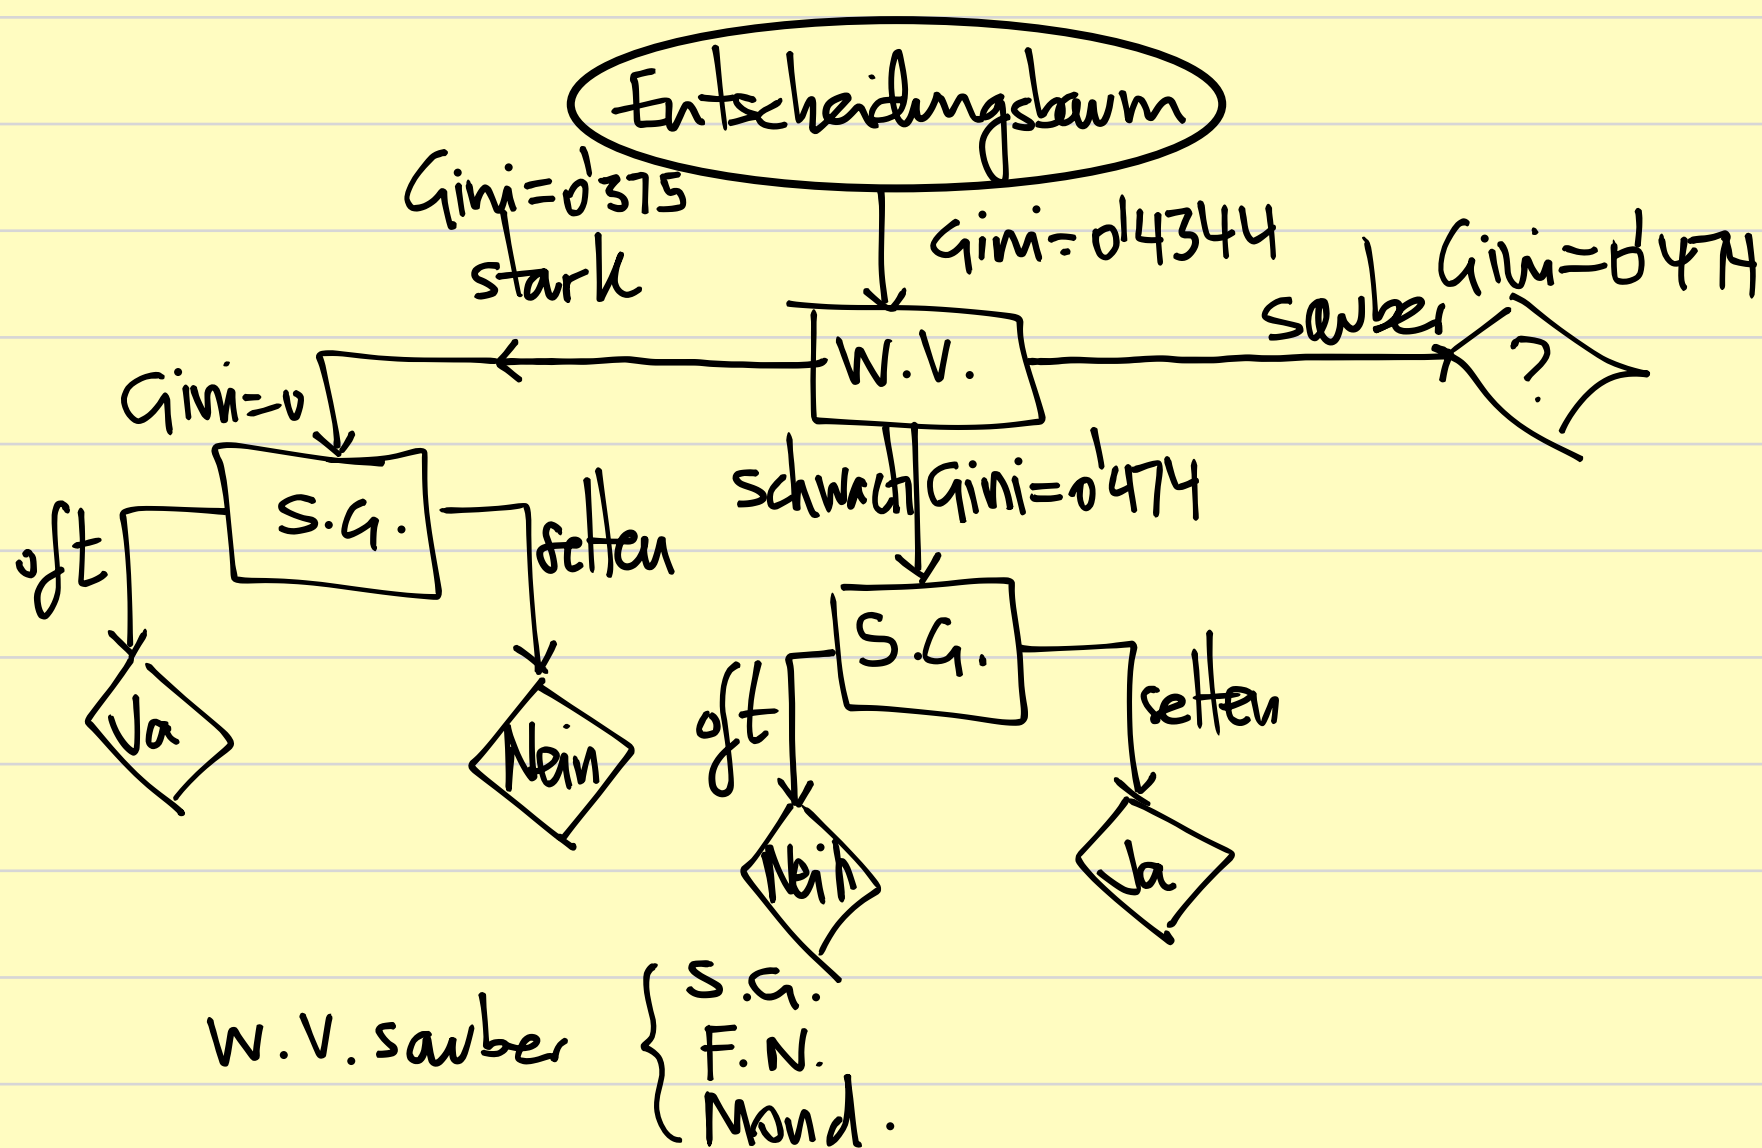 Entscheidungsbaum
Gini=0'375
stark
Gini=0'4344
sauber
Gini=0'474
?
W.V.
Gini=0
S.G.
oft
selten
schwach
Gini=0'474
S.G.
oft
selten
Ja
Nein
Nein
Ja
W.V. sauber
S.G.
F.N.
Mond.